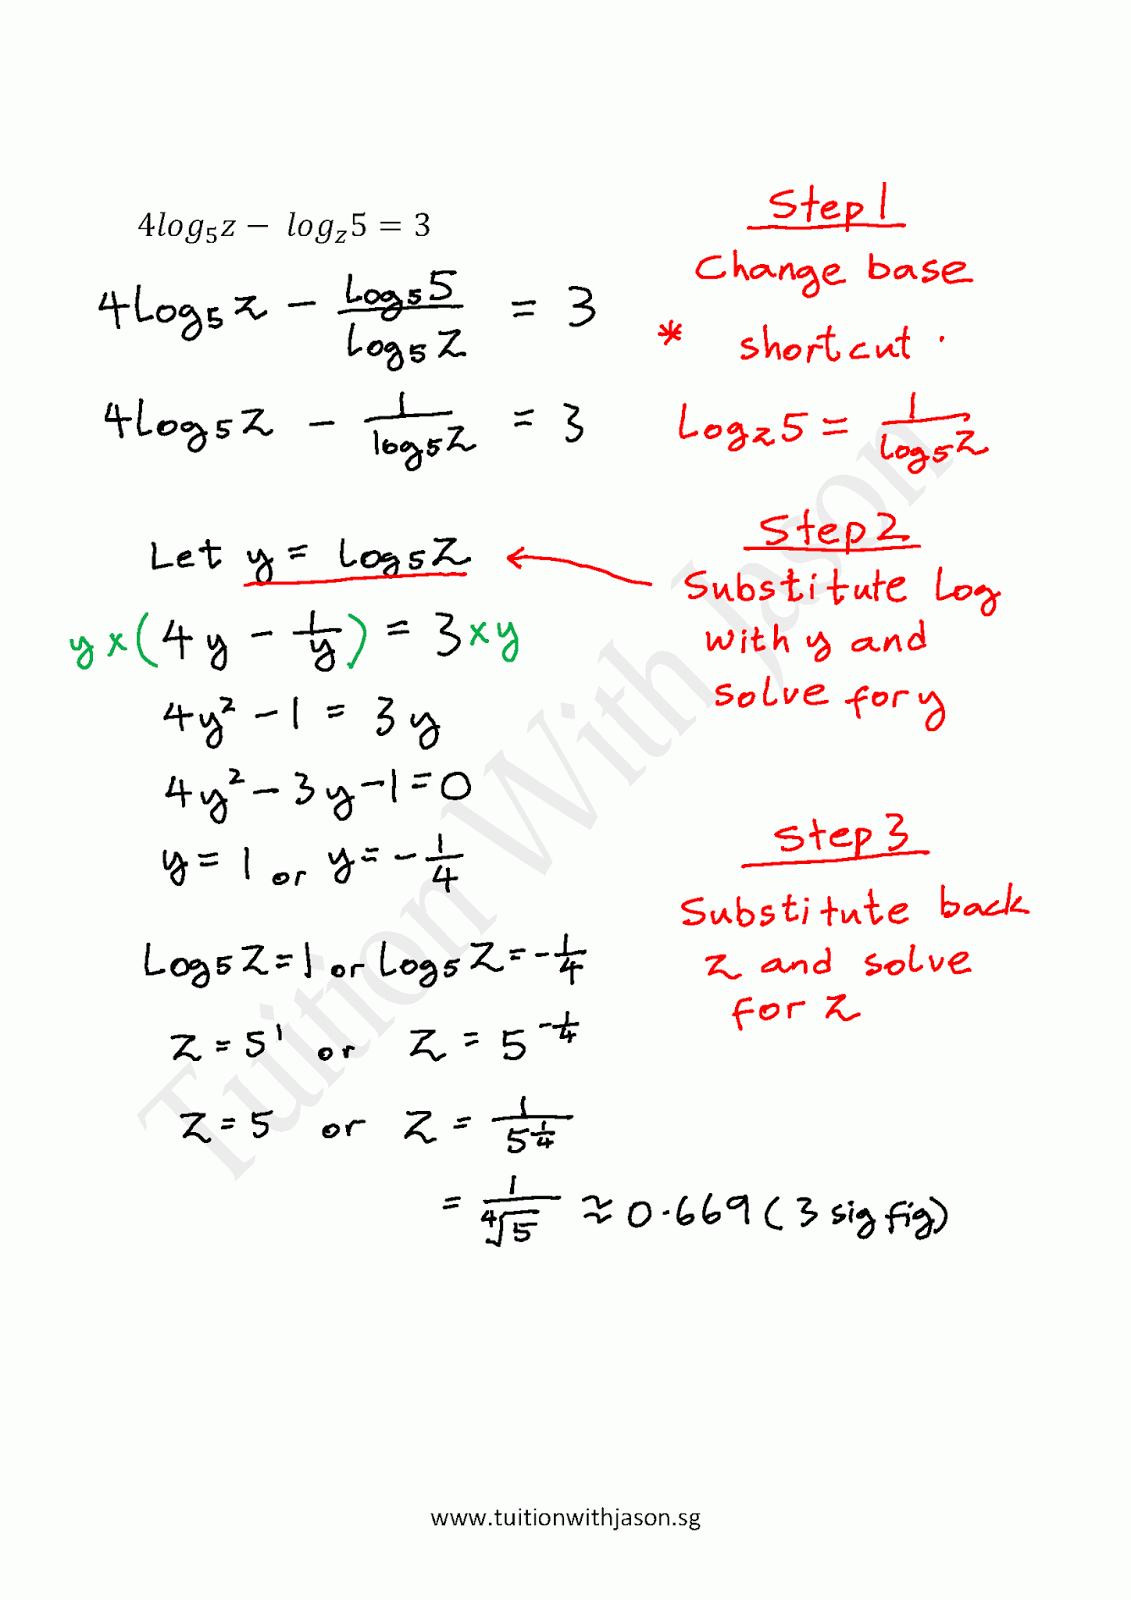 4log₅z − log_z5 = 3
4log₅z − log₅5/log₅z = 3
4log₅z − 1/log₅z = 3
Let y = log₅z
y×(4y − 1/y) = 3×y
4y² − 1 = 3y
4y² − 3y − 1 = 0
y = 1 or y = −1/4
log₅z = 1 or log₅z = −1/4
z = 5¹ or z = 5^(−1/4)
z = 5 or z = 1/5^(1/4)
= 1/∜5 ≈ 0.669 (3 sig fig)
Step 1
Change base
* shortcut.
log_z5 = 1/log₅z
Step 2
Substitute log
with y and
solve for y
Step 3
Substitute back
z and solve
for z
Tuition With Jason
www.tuitionwithjason.sg